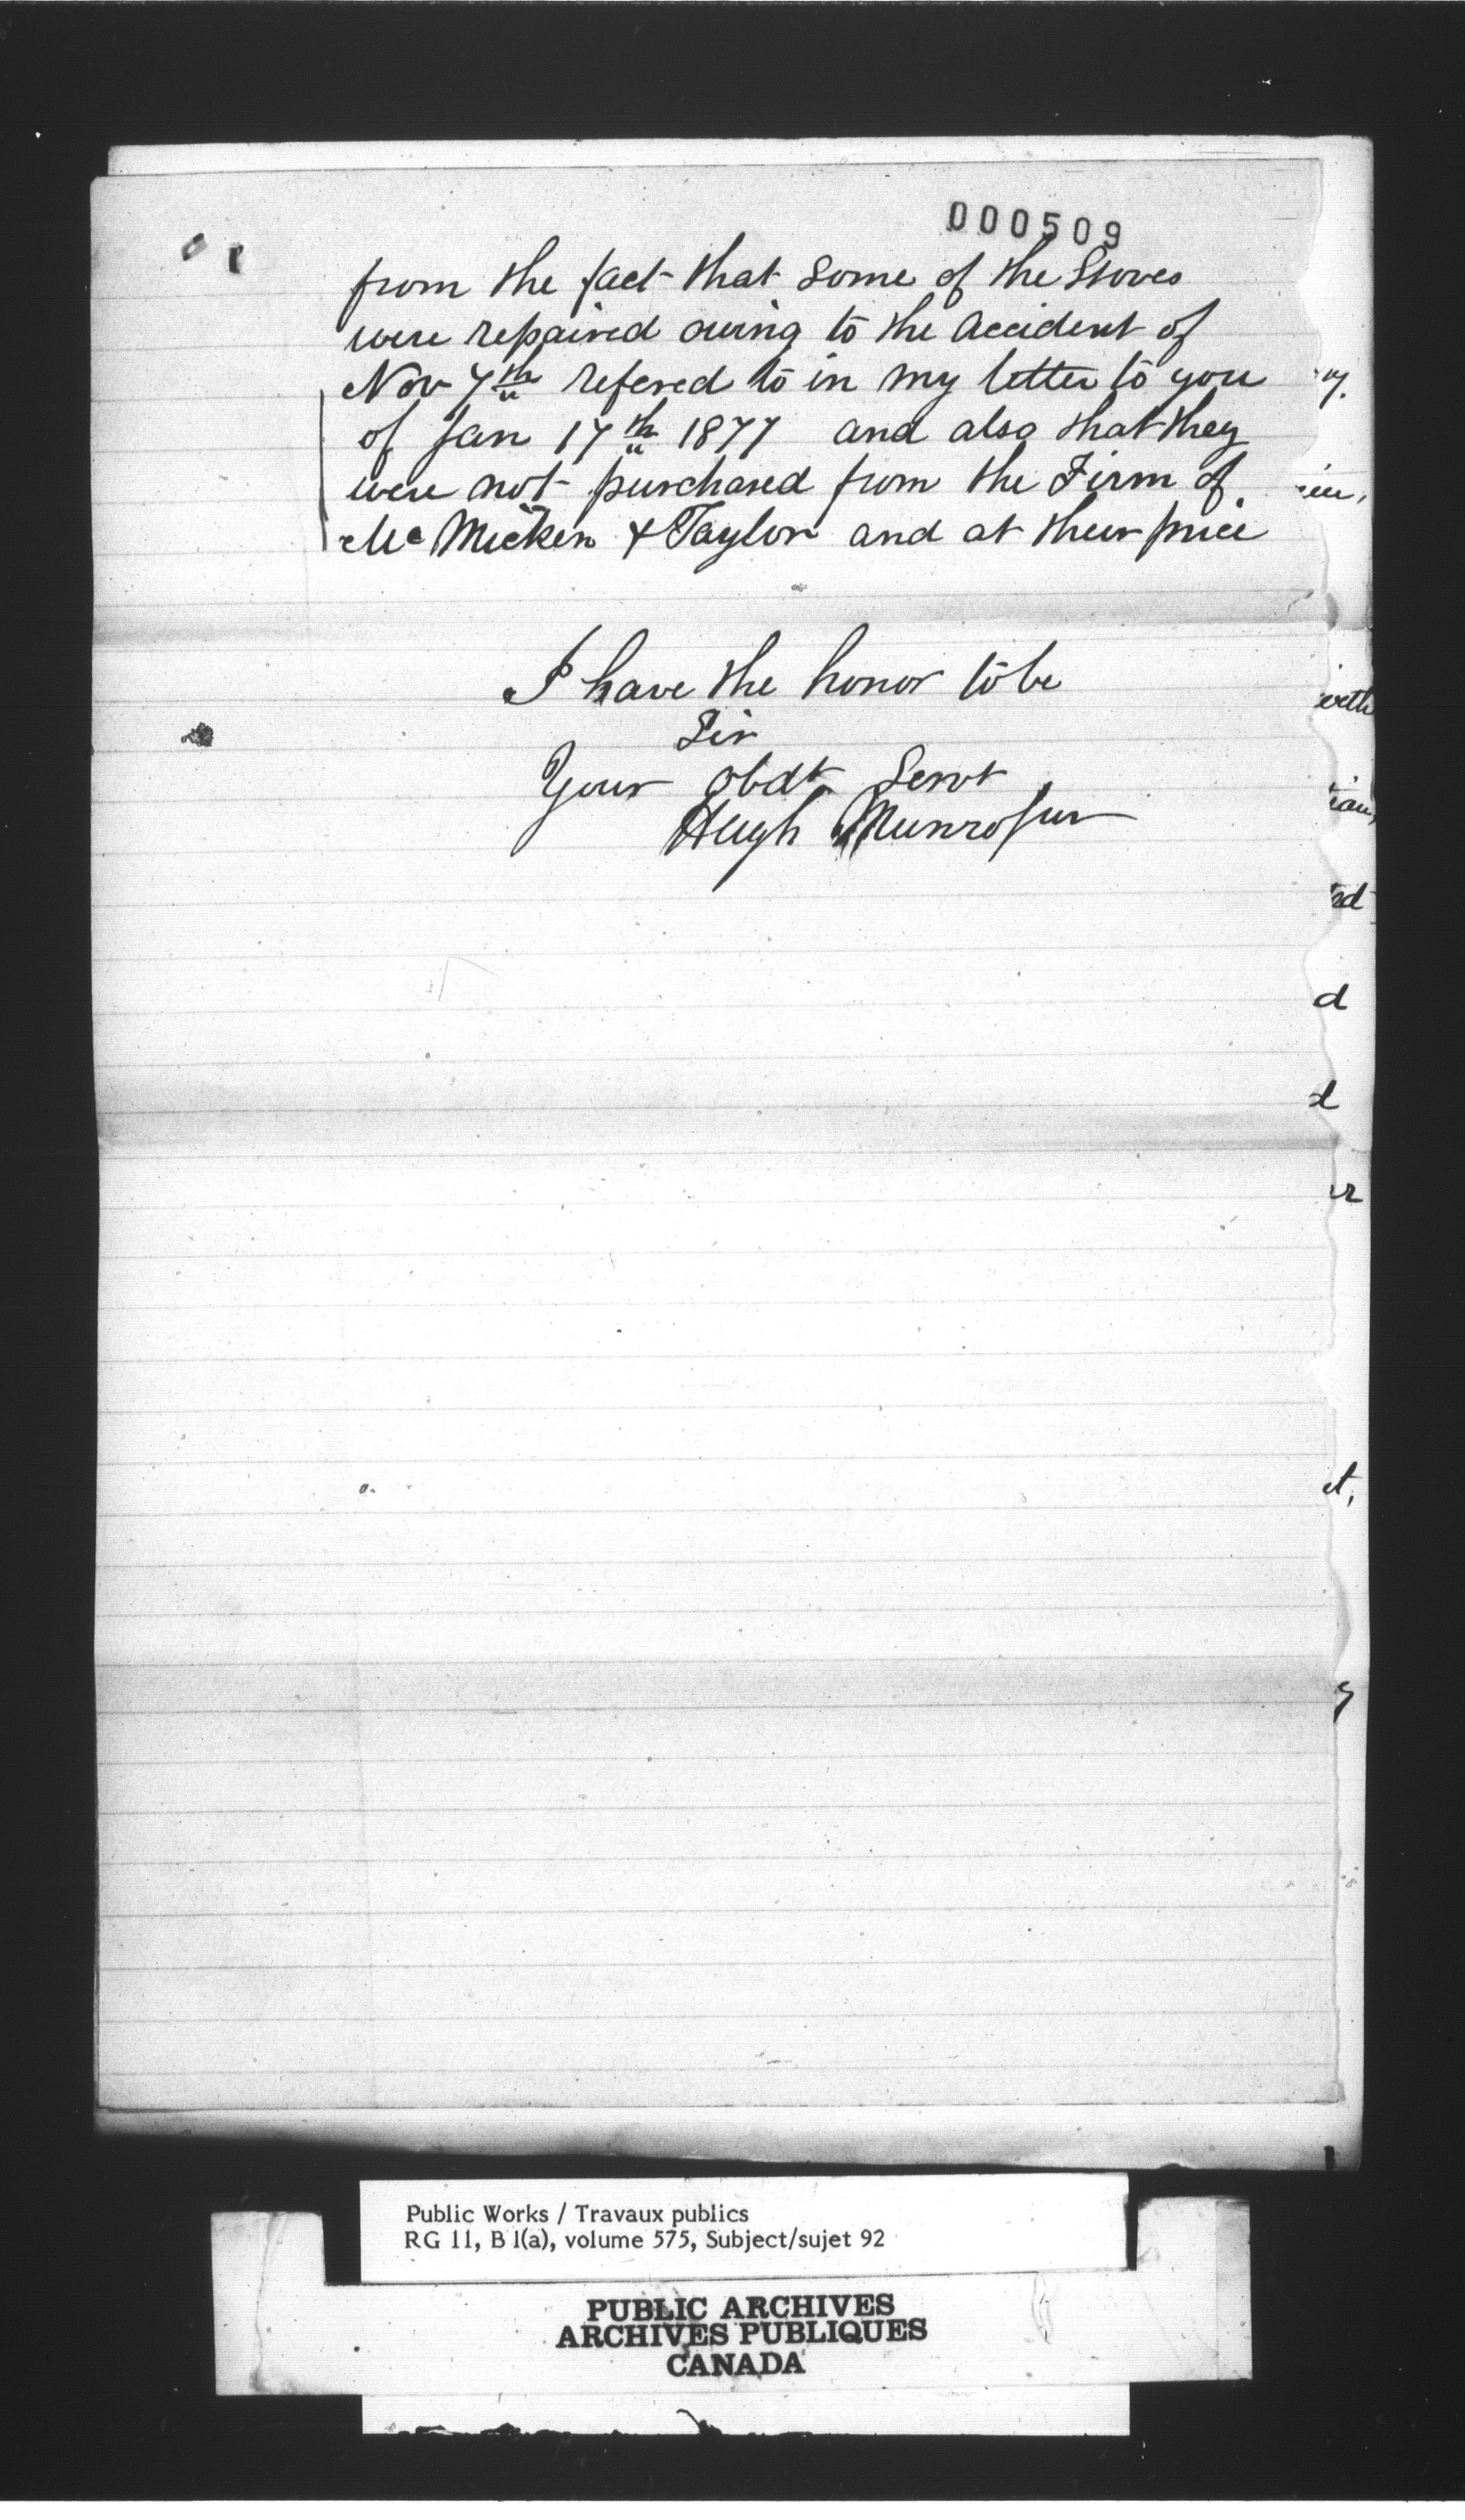 000509
from the fact that some of the Stoves
were repaired owing to the accident of
Nov 7th refered to in my letter to you
of Jan 17th 1877 and also that they
were not purchased from the Firm of
Mc Micken & Taylor and at their price
I have the honor to be
Sir
Your obdt Servt
Hugh Munro Jun
d
Public Works / Travaux publics
RG 11, B 1(a), volume 575, Subject/sujet 92
PUBLIC ARCHIVES
ARCHIVES PUBLIQUES
CANADA